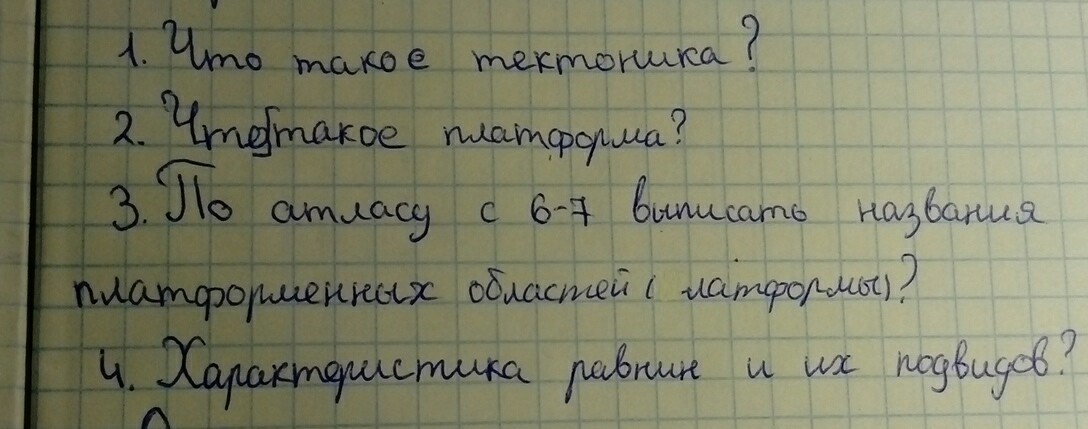 1. Что такое тектоника?
2. Что такое платформа?
3. По атласу с 6-7 выписать названия
платформенных областей ( латформы)?
4. Характеристика равнин и их подвидов?